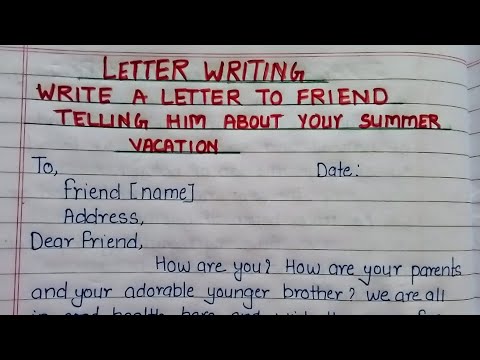 LETTER WRITING
WRITE A LETTER TO FRIEND
TELLING HIM ABOUT YOUR SUMMER
VACATION
To, Date:
Friend [name]
Address,
Dear Friend,
How are you? How are your parents
and your adorable younger brother? We are all
in good health here and